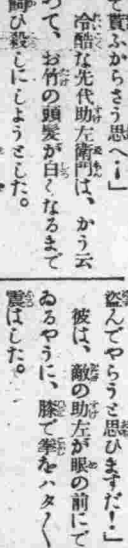 て貰ふからさう思へ…」
冷酷な先代助左衛門は、かう云
つて、お竹の頭髪が白くなるまで
飼ひ殺しにしようとした。
盗んでやらうと思ひますだ！」
彼は、敵の助左が眼の前にで
もゐるやうに、膝で拳をハタ〱
震はした。